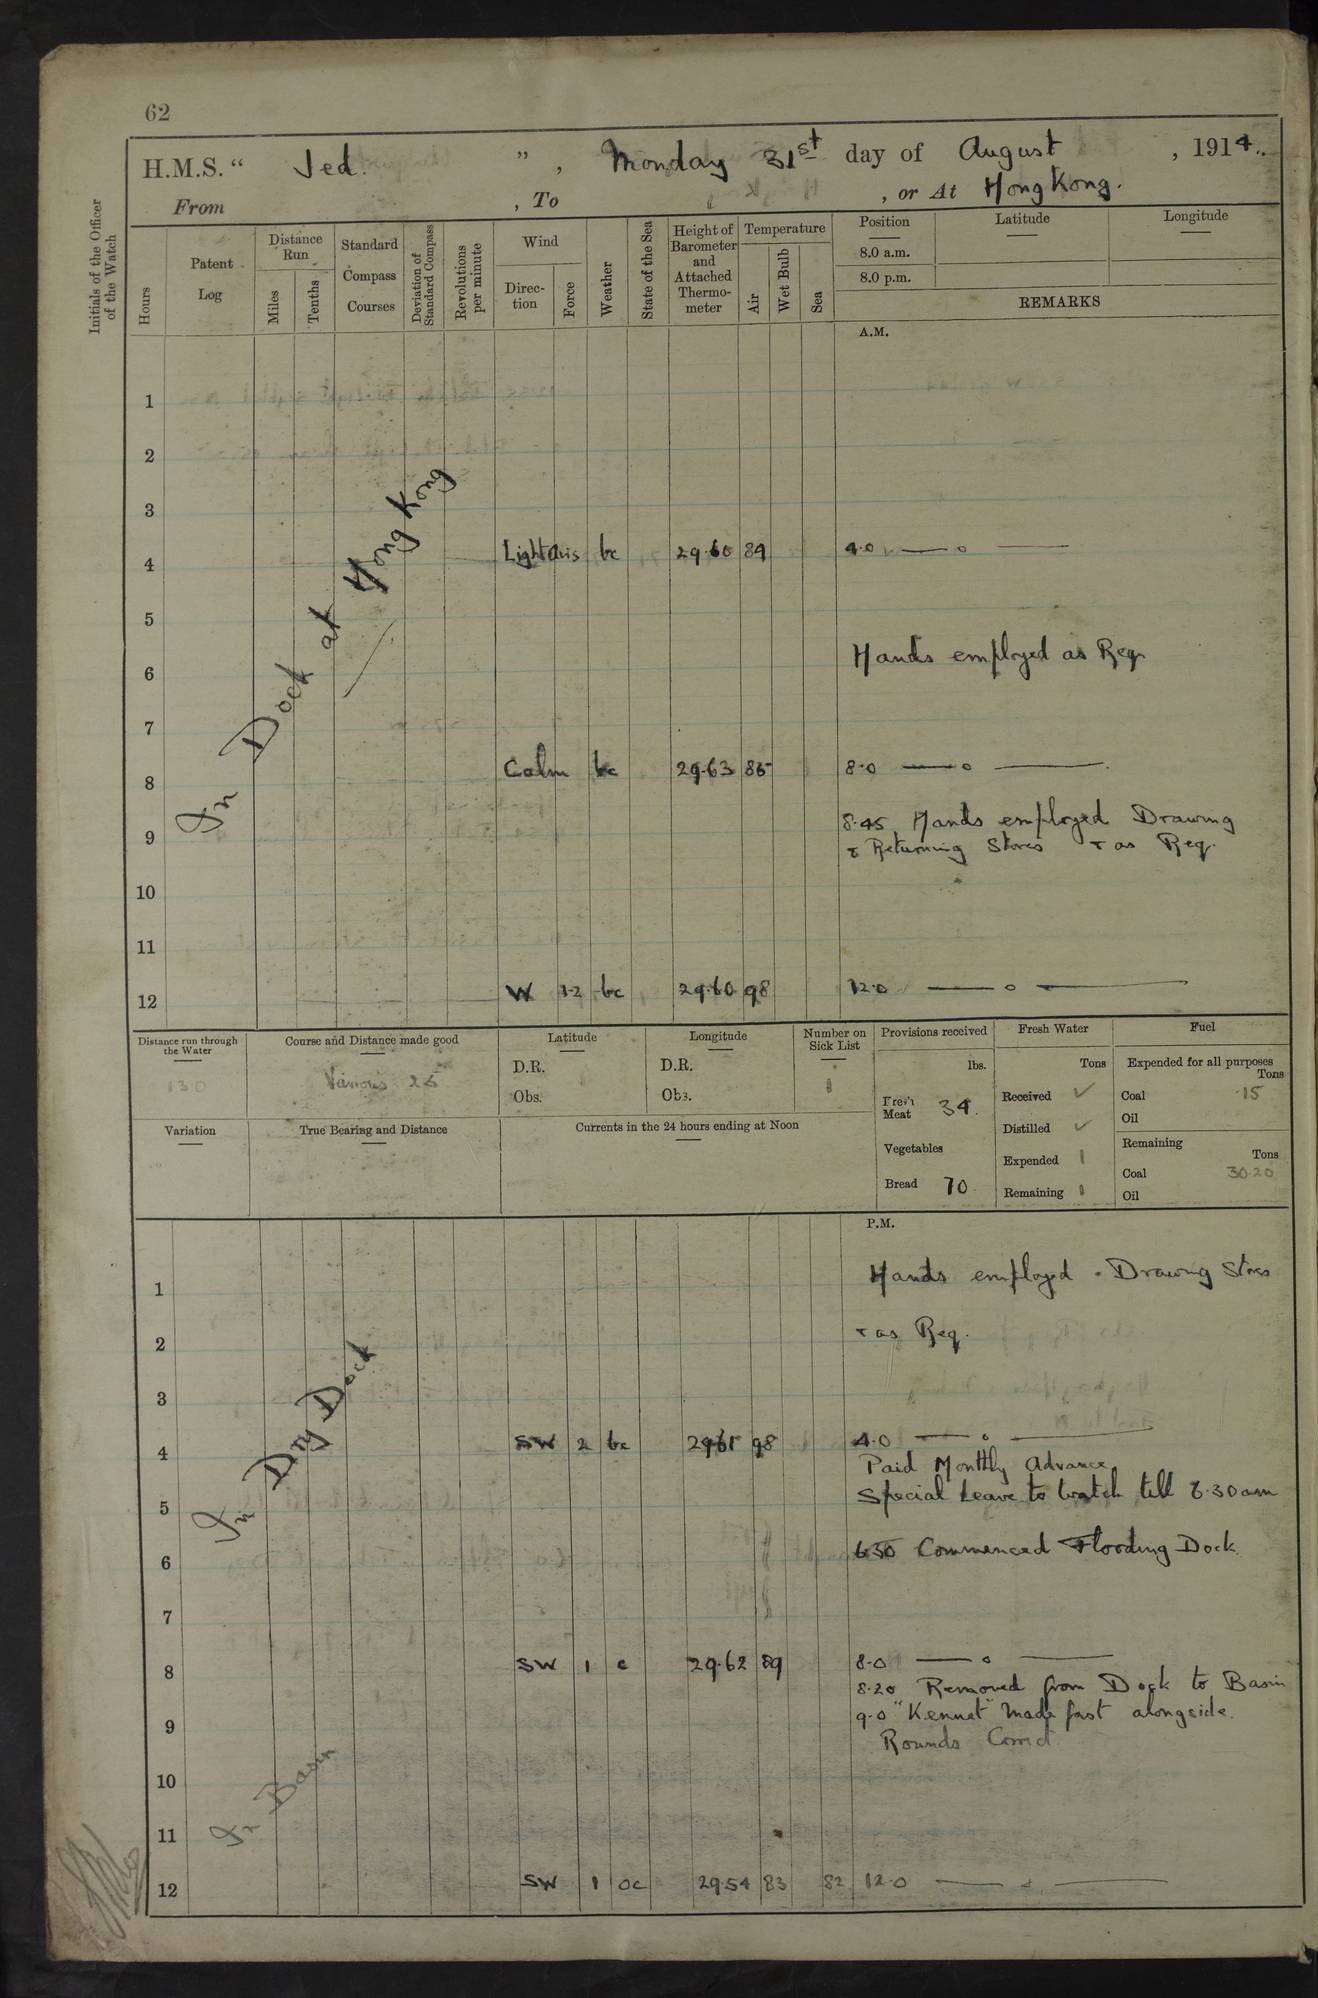 62
H.M.S. “ Jed. ” , Monday 31st day of August , 1914.
From , To , or At Hong Kong.
Initials of the Officer of the Watch
Hours
Patent Log
Distance Run
Miles
Tenths
Standard Compass Courses
Deviation of Standard Compass
Revolutions per minute
Wind
Direction
Force
Weather
State of the Sea
Height of Barometer and Attached Thermometer
Temperature
Air
Wet Bulb
Sea
Position
Latitude
Longitude
8.0 a.m.
8.0 p.m.
REMARKS
A.M.
In Dock at Hong Kong
1
2
3
4 Light airs bc 29.60 84 4.0 — o —
5
6 Hands employed as Req.
7
8 Calm bc 29.63 85 8.0 — o —
8.45 Hands employed Drawing
9 & Returning Stores & as Req.
10
11
12 W 1-2 bc 29.60 98 12.0 — o —
Distance run through the Water
130
Course and Distance made good
Various 25
Latitude
D.R.
Obs.
Longitude
D.R.
Obs.
Number on Sick List
1
Provisions received
lbs.
Fresh Meat 34.
Vegetables
Bread 70
Fresh Water
Tons
Received ✓
Distilled ✓
Expended 1
Remaining
Fuel
Expended for all purposes
Tons
Coal .15
Oil
Remaining
Tons
Coal 30.20
Oil
Variation
True Bearing and Distance
Currents in the 24 hours ending at Noon
P.M.
In Dry Dock
1 Hands employed . Drawing Stores
2 & as Req.
3
4 SW 2 bc 29.61 98 4.0 — o —
Paid Monthly Advance
5 Special Leave to watch till 6.30 am
6 6.30 Commenced Flooding Dock.
7
8 SW 1 c 29.62 89 8.0 — o —
8.20 Removed from Dock to Basin
9 9.0 "Kennet" made fast alongside.
Rounds Correct
In Basin
10
11
12 SW 1 oc 29.54 83 82 12.0 — o —